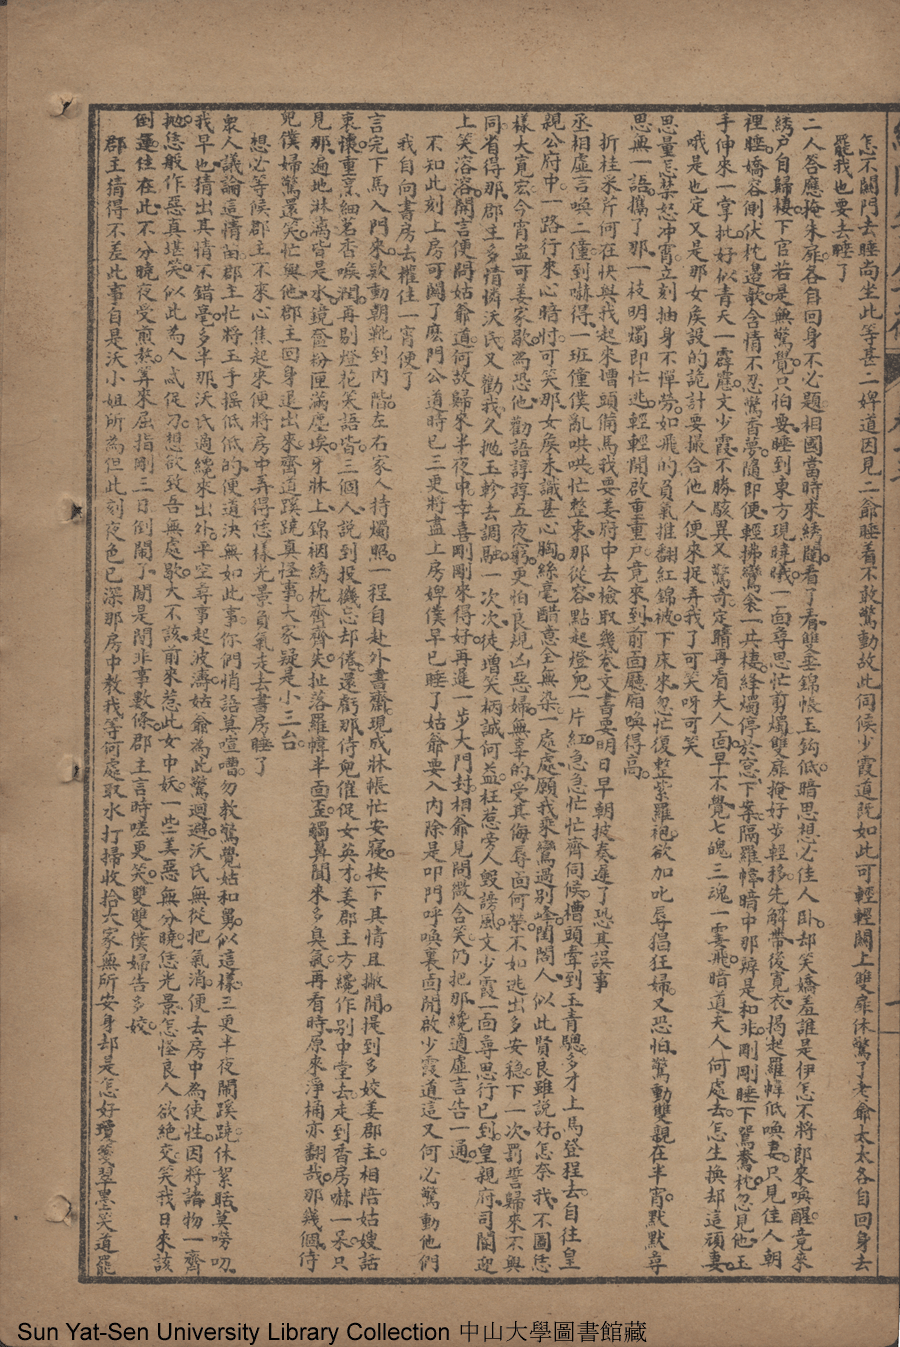 怎不關門去睡尚坐此等甚二婢道因見二爺睡着不敢驚動故此伺候少霞道既如此可輕輕關上雙扉休驚了老爺太太各自回身去
罷我也要去睡了
二人答應掩朱扉各自回身不必題相國當時來綉閣看了看雙垂錦帳玉鈎低暗思想必佳人卧却笑嬌羞誰是伊怎不將郎來喚醒竟來
綉戶自歸棲下官若是無驚覺只怕要睡到東方現曉曦一面尋思忙剪燭雙扉掩好步輕移先解帶後寬衣揭起羅幃低喚妻只見佳人朝
裡睡嬌容側伏枕邊欹含情不忍驚香夢隨即便輕拂鸞衾一共棲絳燭停於窓下案隔羅幃暗中那辨是和非剛剛睡下鴛鴦枕忽見他玉
手伸來一掌批好似青天一霹靂文少霞不勝駭異又驚奇定睛再看夫人面早不覺七魄三魂一霎飛暗道夫人何處去怎生換却這頑妻
哦是也定又是那女矦設的詭計要撮合他人便來捉弄我了可笑呀可笑
思量忘禁怒冲霄立刻抽身不憚勞如飛的負氣推翻紅錦被下床來忽忙復整紫羅袍欲加叱辱猖狂婦又恐怕驚動雙親在半宵默默尋
思無一語攜了那一枝明燭即忙逃輕輕開啟重重戶竟來到前面廳廂喚得高
折桂來斤何在快與我起來槽頭備馬我要姜府中去檢取幾卷文書要明日早朝披奏遲了恐其誤事
丞相虛言喚二僮到嚇得一班僮僕亂哄哄忙整束那從容點起燈兒一片紅急急忙忙齊伺候槽頭牽到玉青驄多才上馬登程去自往皇
親公府中一路行來心暗忖可笑那女矦未識甚心胸絲毫醋意全無染一處處願我乘鸞過別峰閨閤人似此賢良雖說好怎奈我不圖恁
樣大寬宏今宵寍可姜家歇為恐他勸語諄諄五夜窮更怕良規凶惡婦無辜的受其侮辱面何榮不如逃出多安穩下一次罰誓歸來不與
同省得那郡主多情憐沃氏又勸我久抛玉軫去調馭一次次徒增笑柄誠何益枉惹旁人毀謗風文少霞一面尋思行已到皇親府司閽迎
上笑溶溶開言便問姑爺道何故歸來半夜中幸喜剛剛來得好再遲一步大門封相爺見問微含笑仍把那纔適虛言告一通
不知此刻上房可關了麽門公道時已三更將盡上房婢僕早已睡了姑爺要入內除是叩門呼喚裏面開啟少霞道這又何必驚動他們
我自向書房去權住一宵便了
言完下馬入門來欵動朝靴到內階左右家人持燭照一程自赴外書齋現成牀帳忙安寢按下其情且撇開提到多姣姜郡主相陪姑嫂話
衷懷重烹細茗香喉潤再剔燈花笑語皆三個人說到投機忘却倦還虧那侍兒催促女英才姜郡主方纔作別中堂去走到香房嚇一呆只
見那遍地淋漓皆是水鏡奩粉匣滿塵埃牙牀上錦裀綉枕齊齊失扯落羅幃半面歪觸鼻聞來多臭氣再看時原來淨桶亦翻哉那幾個侍
兒僕婦驚還笑忙與他郡主回身退出來齊道蹊蹺真怪事大家疑是小三台
想必等候郡主不來心焦起來便將房中弄得恁樣光景負氣走去書房睡了
衆人議論這情苗郡主忙將玉手搖低低的便道決無如此事你們悄語莫喧嘈勿教驚覺姑和舅似這樣三更半夜鬧蹊蹺休絮聒莫嘮叨
我早也猜出其情不錯毫多半那沃氏適纔來出外平空尋事起波濤姑爺為此驚迴避沃氏無從把氣消便去房中為使性因將諸物一齊
抛恁般作惡真堪笑似此為人忒促刁想欲致吾無處歇大不該前來惹此女中妖一些美惡無分曉恁光景怎怪良人欲絕交笑我日來該
倒運住在此不分曉夜受煎熬算來屈指剛三日倒鬧了鬧是閒非事數條郡主言時嗟更笑雙雙僕婦告多姣
郡主猜得不差此事自是沃小姐所為但此刻夜色已深那房中教我等何處取水打掃收拾大家無所安身却是怎好瓊蔓翠墨笑道罷
Sun Yat-Sen University Library Collection 中山大學圖書館藏